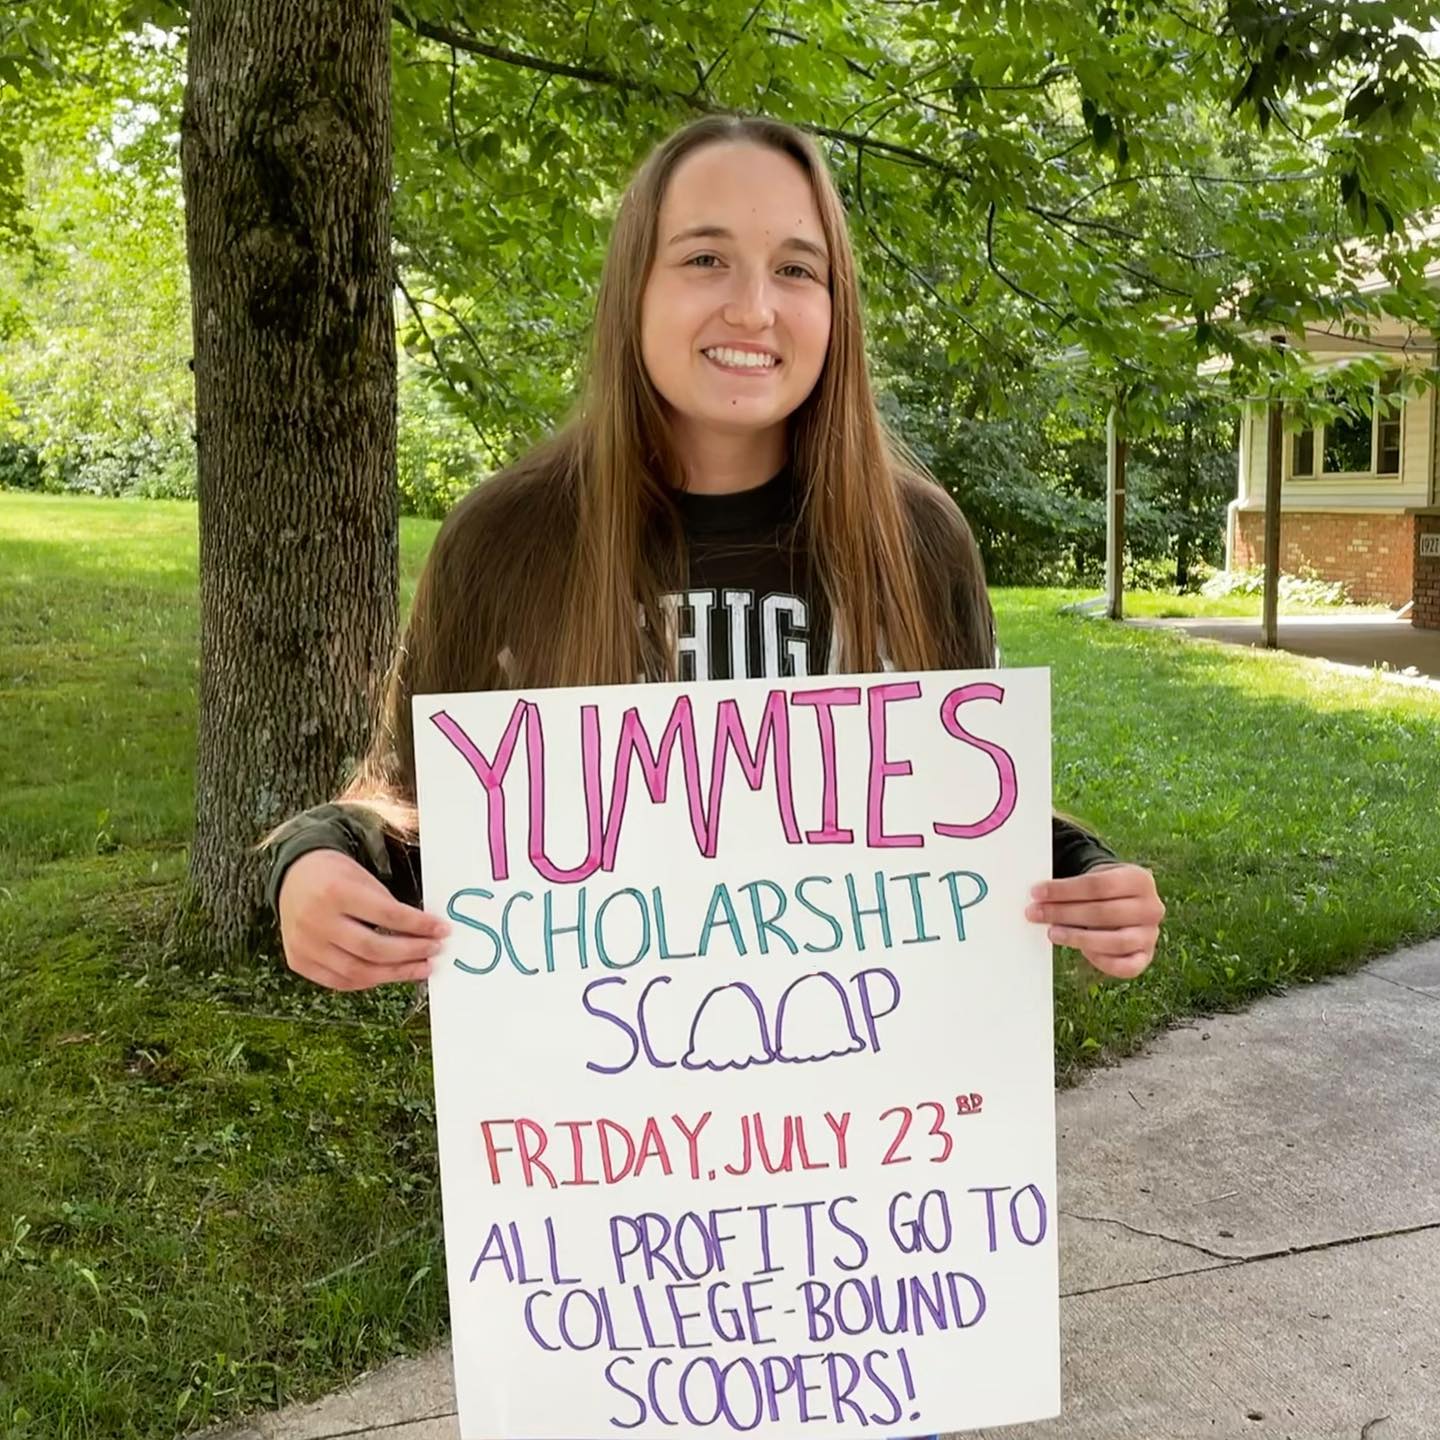 HIG
1927
YUMMIES
SCHOLARSHIP
SCOOP
FRIDAY, JULY 23RD
ALL PROFITS GO TO
COLLEGE-BOUND
SCOOPERS!